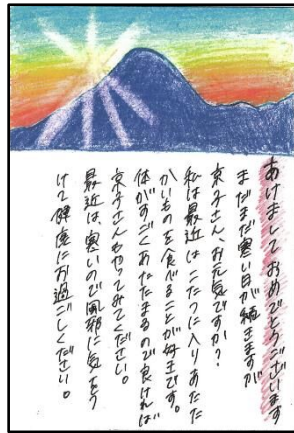 あけましておめでとうございます
まだまだ寒い日が続きますが
京子さん、お元気ですか?
私は最近はこたつに入りあたた
かいものを食べることが好きです。
体がすごくあたたまるので良ければ
京子さんもやってみてください。
最近は、寒いので風邪に気をつ
けて健康にお過ごしください。